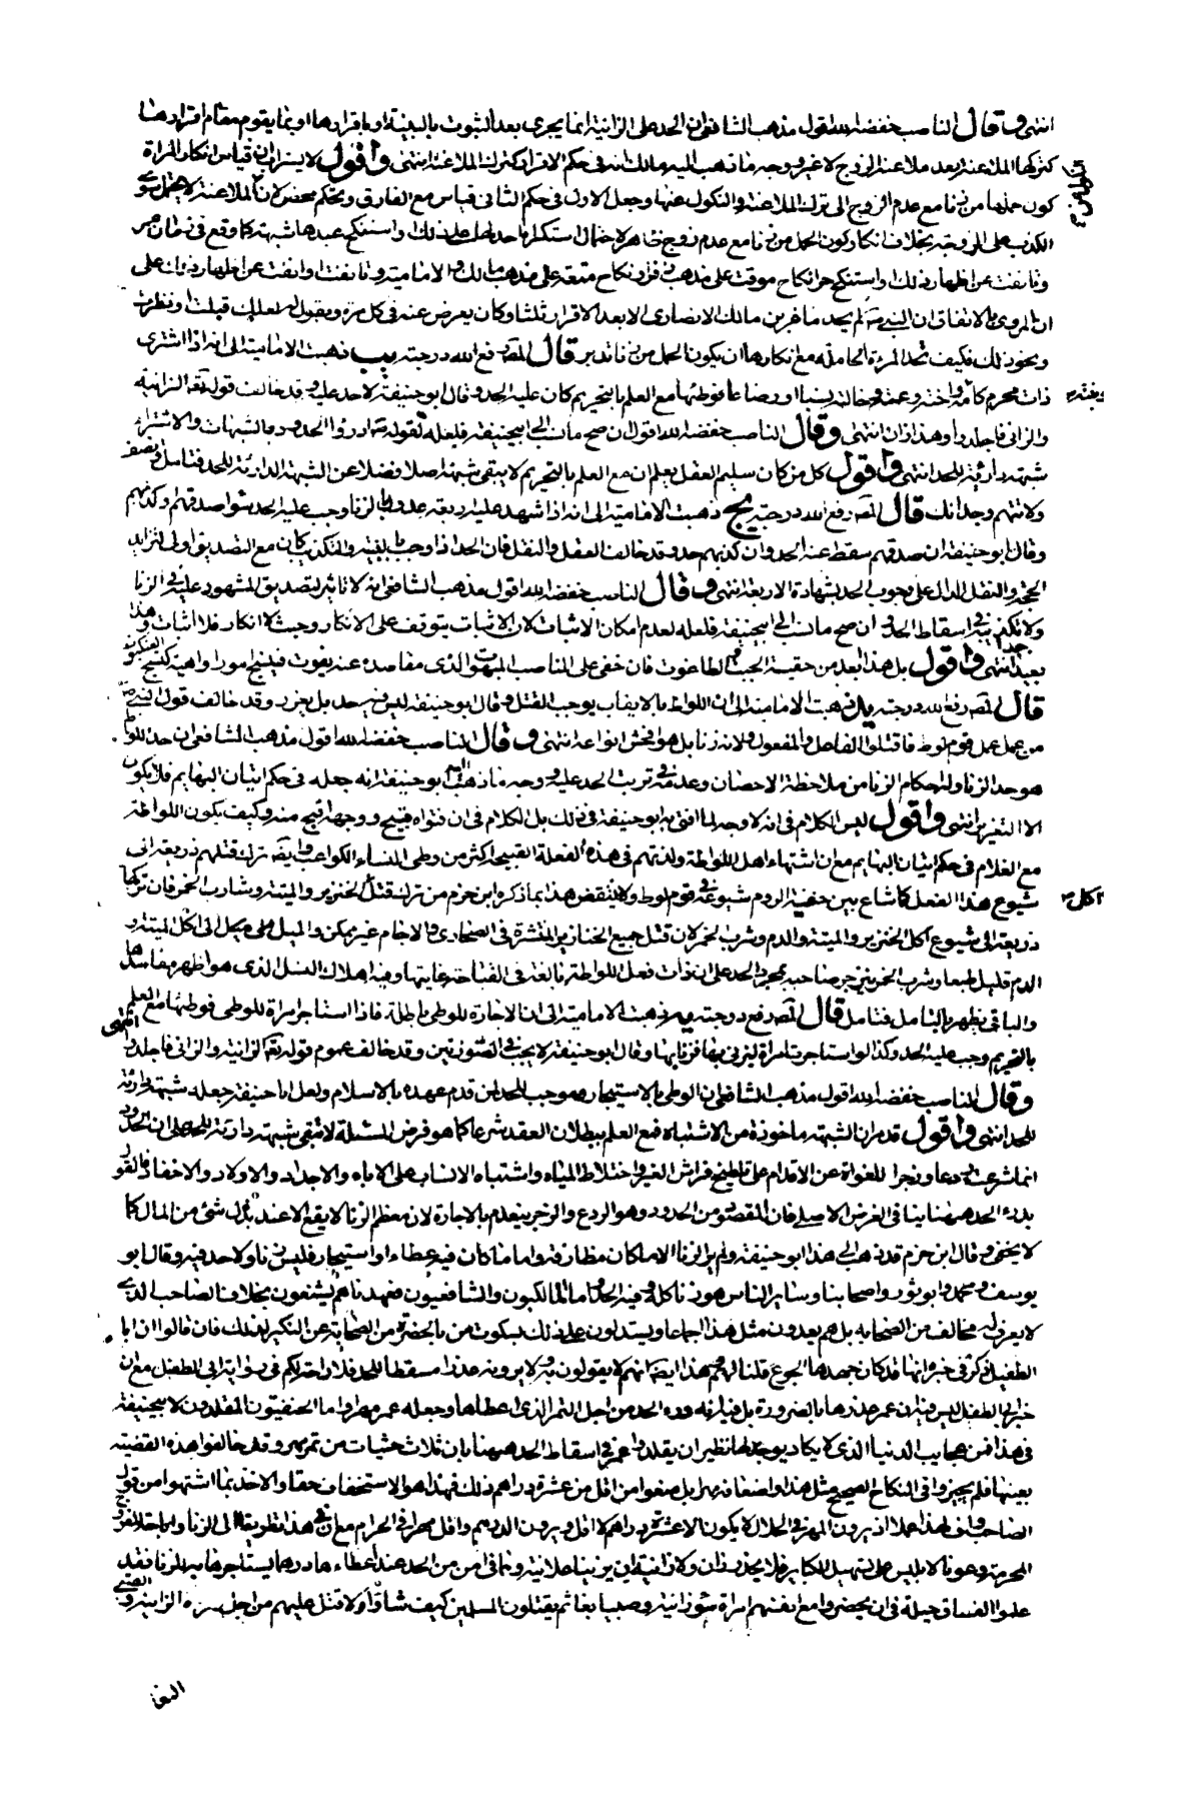 انتهى وقال الناصب خفضه الله اقول مذهب الشافعي ان الحد على الزانية انما يجرى بعد الثبوت بالبينة او باقرارها او بما يقوم مقام اقرارها
كتركها الملاعنة بعد ملاعنة الزوج لا غير ووجه ما ذهب اليه مالك انه في حكم الاقرار كترك الملاعنة انتهى واقول لا يستراب ان قياس انكار المراة
كون حملها من زنا مع عدم الزوج الى ترك الملاعنة والنكول عنها وجعل الاول في حكم الثاني قياس مع الفارق وتحكم محض لان الملاعنة لا يحتمل سوى
الكذب على الزوجة بخلاف انكار كون الحمل من زنا مع عدم زوج ظاهر لاحتمال استكراه احد لها على ذلك او استنكح عبدها شبهة كما وقع في زمان عمر
وتانفت عن اظهار ذلك او استنكح حرا نكاح موقت على مذهب زفر او نكاح متعة على مذهب مالك والامامية وتانفت او اتقت عن اظهار ذلك على
ان المروى بالاتفاق ان النبي ص لم يحد ماعز بن مالك الانصارى الا بعد الاقرار ثلثا وكان يعرض عنه في كل مرة ويقول له لعلك قبلت او نظرت
ونحو ذلك فكيف تحد المرءة الحاملة مع انكارها ان يكون الحمل من زنا تدبر قال المص رفع الله درجته يب ذهبت الامامية الى انه اذا اشترى
ذات محرم كامه واخته وعمته وخالته نسبا او رضاعا فوطئها مع العلم بالتحريم كان عليه الحد وقال ابو حنيفة لا حد عليه وقد خالف قوله تعالى الزانية
والزاني فاجلدوا وهذا زان انتهى وقال الناصب خفضه الله اقول ان صح ما نسب الى ابي حنيفة فلعله لقوله ص ادرؤا الحدود بالشبهات والاشتراء
شبهة دارئة للحد انتهى واقول كل من كان سليم العقل يعلم ان مع العلم بالتحريم لا يبقى شبهة اصلا فضلا عن الشبهة الدارئة للحد فتامل وانصف
ولا تتهم وجدانك قال المص رفع الله درجته يج ذهبت الامامية الى انه اذا شهد عليه اربعة عدول بالزنا وجب عليه الحد سواء صدقهم او كذبهم
وقال ابو حنيفة ان صدقهم سقط عنه الحد وان كذبهم حد وقد خالف العقل والنقل فان الحد اذا وجب بالبينة والتكذيب كان مع التصديق اولى لتزايد
الحجة والنقل الدال على وجوب الحد بشهادة الاربعة انتهى وقال الناصب خفضه الله اقول مذهب الشافعي انه لا تاثير لتصديق المشهود عليه في الزنا
ولا تكذيبه في اسقاط الحد وان صح ما نسب الى ابي حنيفة فلعله لعدم امكان الاثبات لان الاثبات يتوقف على الانكار وحيث لا انكار فلا اثبات وهذا
بعيد جدا انتهى واقول بل هذا ابعد من حقية الجبت والطاغوت فان خفى على الناصب المبهوت الذى مقاصده عنه يفوت فينسج امورا واهية كنسج العنكبوت
قال المص رفع الله درجته يد ذهبت الامامية الى ان اللواط بالايقاب يوجب القتل وقال ابو حنيفة ليس فيه حد بل يعزر وقد خالف قول النبي ص
من عمل عمل قوم لوط فاقتلوا الفاعل والمفعول ولانه زنا بل هو افحش انواعه انتهى وقال الناصب خفضه الله اقول مذهب الشافعي ان حد اللواط
هو حد الزنا وله احكام الزنا من ملاحظة الاحصان وعدمه في ترتب الحد عليه ووجه ما ذهب اليه ابو حنيفة انه جعله في حكم اتيان البهايم فلا يكون
الا التعزير انتهى واقول ليس الكلام في انه لا وجه لما افتى به ابو حنيفة في ذلك بل الكلام في ان فتواه قبيح ووجهه اقبح منه وكيف يكون اللواطة
مع الغلام في حكم اتيان البهايم مع ان اشتهاء اهل اللواطة ولذتهم في هذه الفعلة القبيحة اكثر من وطى النساء الكواعب وايضا ترك قتلهم ذريعة الى
شيوع هذا الفعل كما شاع بين حنفية الروم شيوعه في قوم لوط ولا ينتقض هذا بما ذكره ابن حزم من ترك قتل آكل الخنزير والميتة وشارب الخمر فان تركها
ذريعة الى شيوع اكل الخنزير والميتة والدم وشرب الخمر لان قتل جميع الخنازير المنتشرة في الصحارى والاجام غير ممكن والميل من كل احد الى اكل الميتة و
الدم قليل طبعا وشرب الخمر يزجر صاحبه بمجرد الحد على ان ذات فعل اللواطة بالغة في القباحة غايتها وفيه اهلاك النسل الذى هو اظهر مفاسدها
والباقي يظهر بالتامل فتامل قال المص رفع درجته يه ذهبت الامامية الى ان الاجارة للوطى باطلة فاذا استاجر امراة للوطى فوطئها مع العلم
بالتحريم وجب عليه الحد وكذا لو استاجرت امراة ليزنى بها فزنى بها وقال ابو حنيفة لا يجب في الصورتين وقد خالف عموم قوله تعالى الزانية والزاني فاجلدوا انتهى
وقال الناصب خفضه الله اقول مذهب الشافعي ان الوطى بالاستيجار موجب للحد لمن قدم عهده بالاسلام ولعل ابا حنيفة جعله شبهة دارئة
للحد انتهى واقول قد مر ان الشبهة ماخوذة من الاشتباه فمع العلم ببطلان العقد شرعا كما هو فرض المسئلة لا تبقى شبهة دارئة للحد على ان الحدود
انما شرعت ردعا وزجرا للغواة عن الاقدام على تلطيخ فراش الغير واختلاط المياه واشتباه الانساب على الاباء والاجداد والاولاد والاحفاد فالقول
بدرء الحد ههنا ينافي الغرض الاصلي فان المقصود من الحدود وهو الردع والزجر ينعدم بالاجارة لان معظم الزنا لا يقع الا عند بذل شئ من المال كما
لا يخفى وقال ابن حزم قد ذهب الى هذا ابو حنيفة ولم ير الزنا الا ما كان مطارفة واما ما كان فيه عطاء او استيجار فليس زنا ولا حد فيه وقال ابو
يوسف ومحمد وابو ثور واصحابنا وساير الناس هو زنا كله وفيه الحد واما المالكيون والشافعيون فعهدناهم يشنعون بخلاف الصاحب الذى
لا يعرف له مخالف من الصحابة بل هم يعدون مثل هذا اجماعا ويستدلون على ذلك بسكوت من بالحضرة من الصحابة عن النكير لذلك فان قالوا ان ابا
الطفيل ذكر في خبره انها قد كان جهدها الجوع قلنا لهم وهذا ايضا انتم لا تقولون به ولا ترونه عذرا مسقطا للحد فلا راحة لكم في رواية ابي الطفيل مع ان
خبر ابي الطفيل ليس فيه ان عمر عذرها بالضرورة بل فيه انه درء الحد من اجل التمر الذى اعطاها وجعله عمر مهرا واما الحنفيون المقلدون لابي حنيفة
في هذا فمن عجايب الدنيا الذى لا يكاد يوجد لها نظير ان يقلدوا عمر في اسقاط الحد ههنا بان ثلاث حثيات من تمر مهر وقد خالفوا هذه القضية
بعينها فلم يجيزوا في النكاح الصحيح مثل هذا واضعافه مهرا بل منعوا من اقل من عشرة دراهم ذلك فهذا هو الاستخفاف حقا والاخذ بما اشتهوا من قول
الصاحب واف لهذا عملا اذ يرون المهر في الحلال لا يكون الا عشرة دراهم لا اقل ويرون الدرهم واقل مهرا في الحرام مع ان في هذا تطريقا الى الزنا واباحة الفروج
المحرمة وعونا لابليس على تسهيل الكباير فلا يحد زان ولا زانية ان يزنيا علانية وهما في امن من الحد عند اعطاءها درهما يستاجرها به للزنا فقد
علموا الفساق حيلة في ان يحضروا مع انفسهم امراة سوء زانية وصبيا بغاء ثم يقتلون المسلمين كيف شاؤا ولا قتل عليهم من اجل المراة الزانية والصبي
البغاء